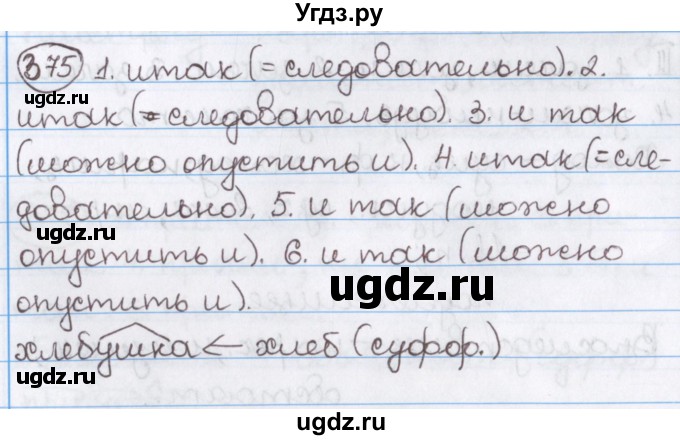 Угдз.ру
375 1. итак (= следовательно). 2.
ugdz.ru
итак (= следовательно). 3. и так
(можно опустить и). 4. итак (= сле-
довательно), 5. и так (можно
ugdz.ru
опустить и). 6. и так (можно
опустить и).
ugdz.ru
хлебушка ← хлеб (суфф.)
ugdz.ru
ugdz.ru
ugdz.ru